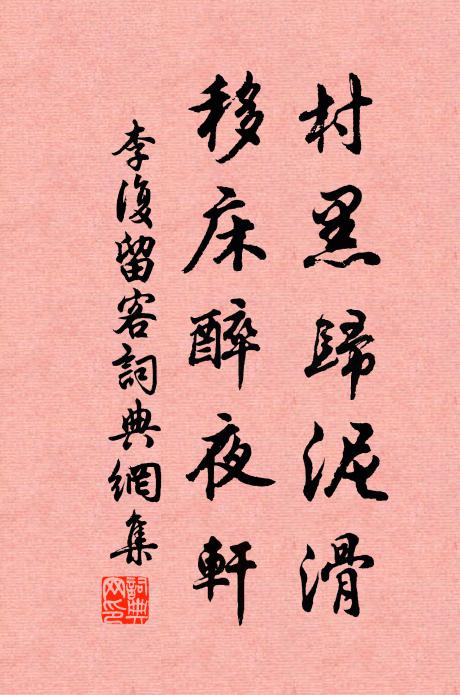 村黑歸泥滑
移床醉夜軒
李復留客詞典網集
詞典
网印